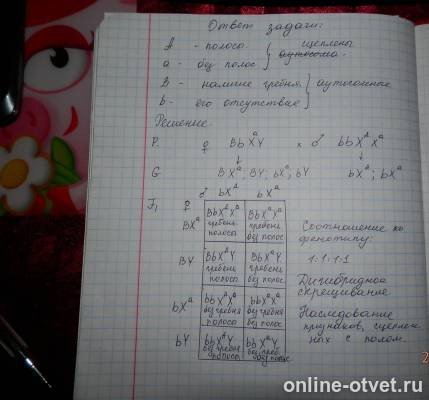 Ответ задачи:
A - полоса } сцеплены
a - без полос } аутосома.
B - наличие гребня } аутосомные
b - его отсутствие
Решение.
P. ♀ Bb XᵃY × ♂ bb XᴬXᵃ
↓ ↓
G BXᵃ; BY; bXᵃ; bY bXᴬ; bXᵃ
♂ bXᴬ bXᵃ
F₁ ♀
BXᵃ BbXᴬXᵃ гребень полоса BbXᵃXᵃ гребень без полос
BY BbXᴬY гребень полоса BbXᵃY гребень без полос
bXᵃ bbXᴬXᵃ без гребня полоса bbXᵃXᵃ без гребня без полос
bY bbXᴬY без гребня полоса bbXᵃY без греб без полос
Соотношение по
фенотипу:
1:1:1:1
Дигибридное
скрещивание
Наследование
признаков, сцеплен
ных с полом.
2
online-otvet.ru